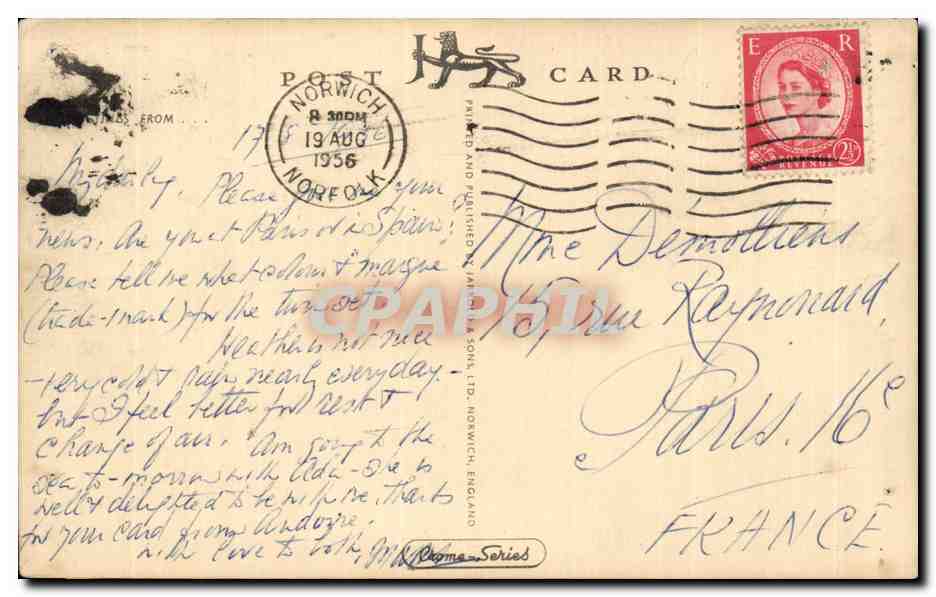 POST CARD
E R
2½
REVENUE
NORWICH
8 30PM
19 AUG
1956
NORFOLK
FROM
Please give me your
news. Are you at Paris or in Spain?
Please tell me what colour & marque
(trade-mark) for the twin set
Weather is not nice
- very cold & rain nearly everyday -
but I feel better for rest &
change of air. Am going to the
sea to-morrow with Ada - she is
well & delighted to be with me. Thanks
for your card from Andorre.
with love to both,
PRINTED AND PUBLISHED BY JARROLD & SONS, LTD. NORWICH, ENGLAND
Mme
15, rue Raynouard,
Paris. 16e
FRANCE
Chrome Series
CPAPHIL